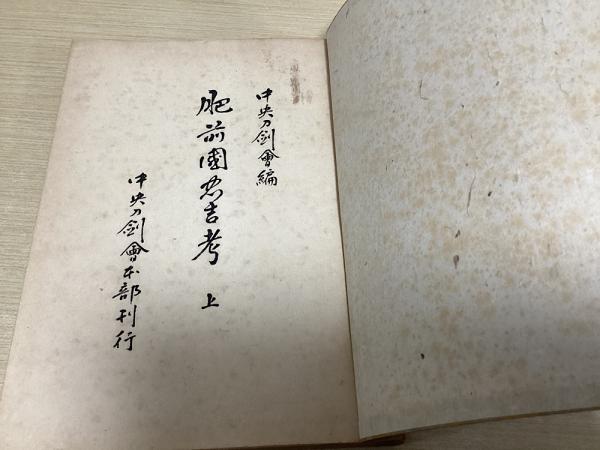 中央刀劍會編
肥前國忠吉考 上
中央刀劍會本部刊行